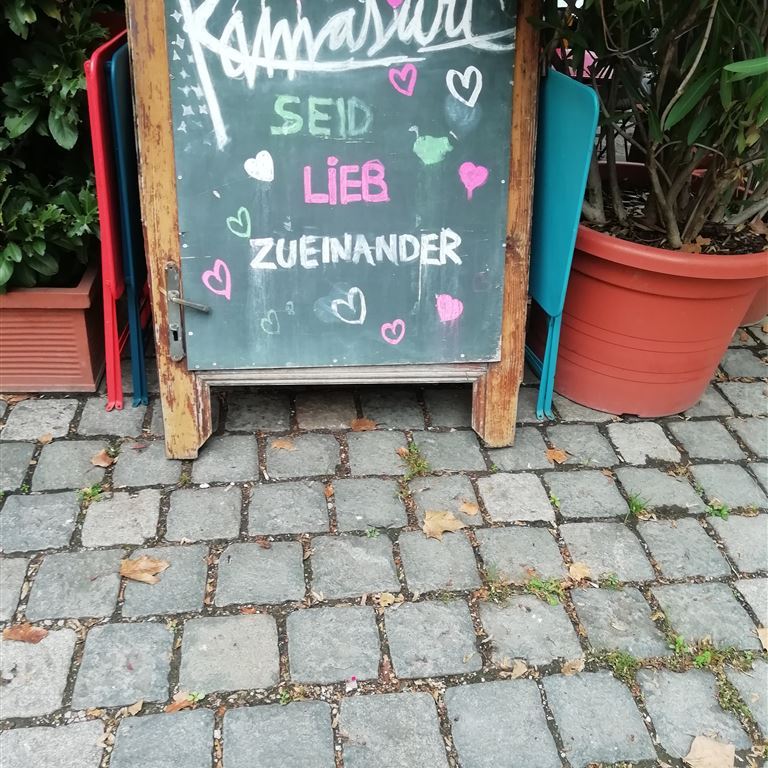 Kamasuri
SEID
LIEB
ZUEINANDER